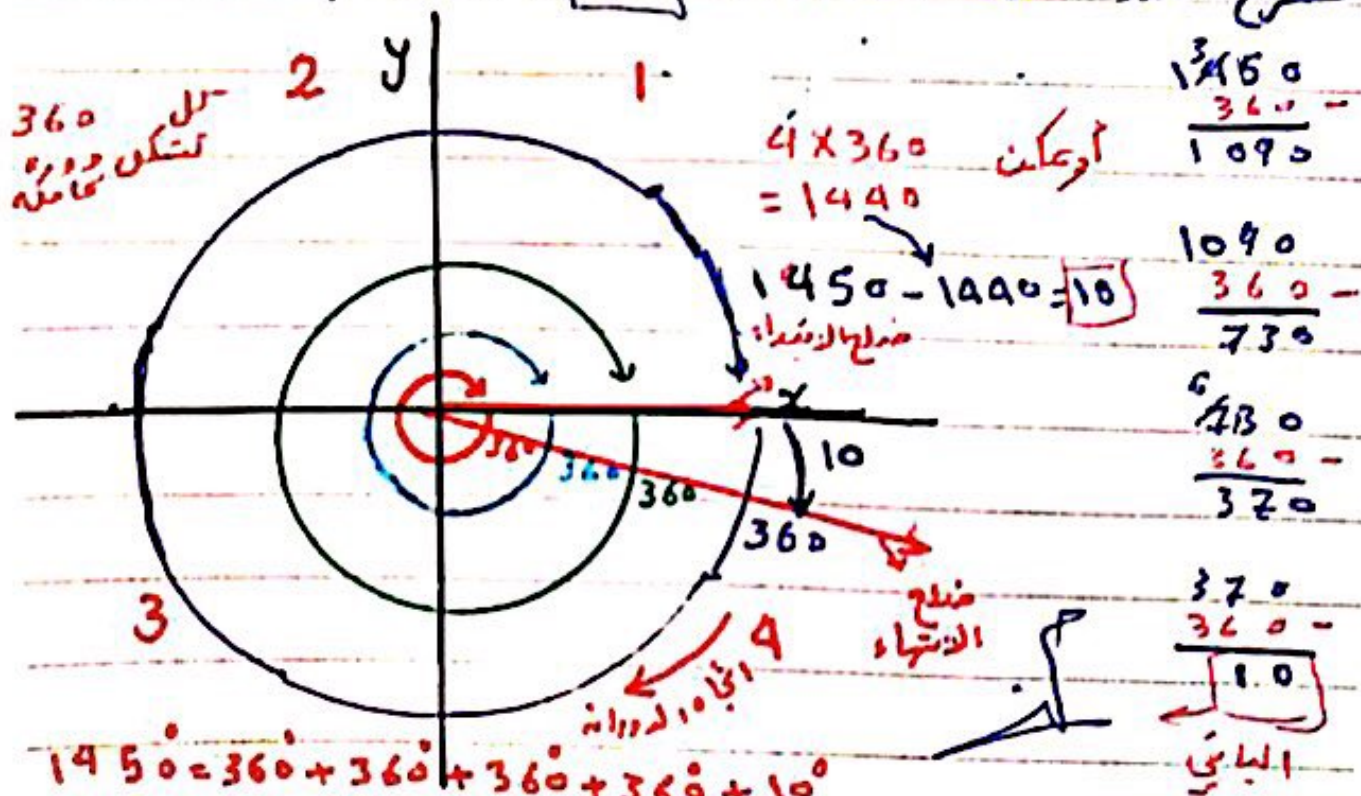 2 y 1
كل 360
تشكل دورة
كاملة
4 × 360
= 1440
أو يمكن
1450 - 1440 = 10
ضلع الابتداء
x
10
360
360
360
360
ضلع
الانتهاء
3
4
اتجاه الدوران
1450° = 360° + 360° + 360° + 360° + 10°
1450
360 -
1090
1090
360 -
730
6
730
360 -
370
370
360 -
10
الباقي